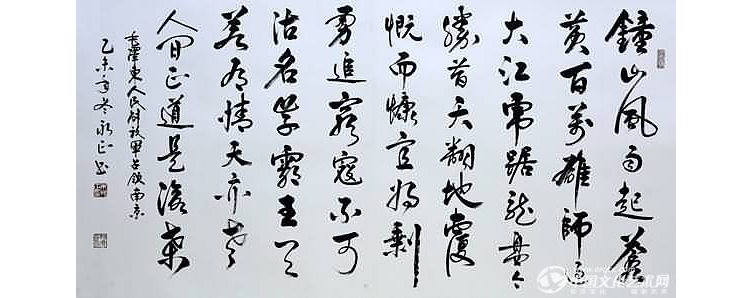 鐘山風雨起蒼
黄百萬雄師過
大江虎踞龍盤今
勝昔天翻地覆
慨而慷宜将剩
勇追窮寇不可
沽名学霸王天
若有情天亦老
人间正道是滄桑
毛澤東人民解放軍占領南京
乙未年永正书
中国文化艺术网